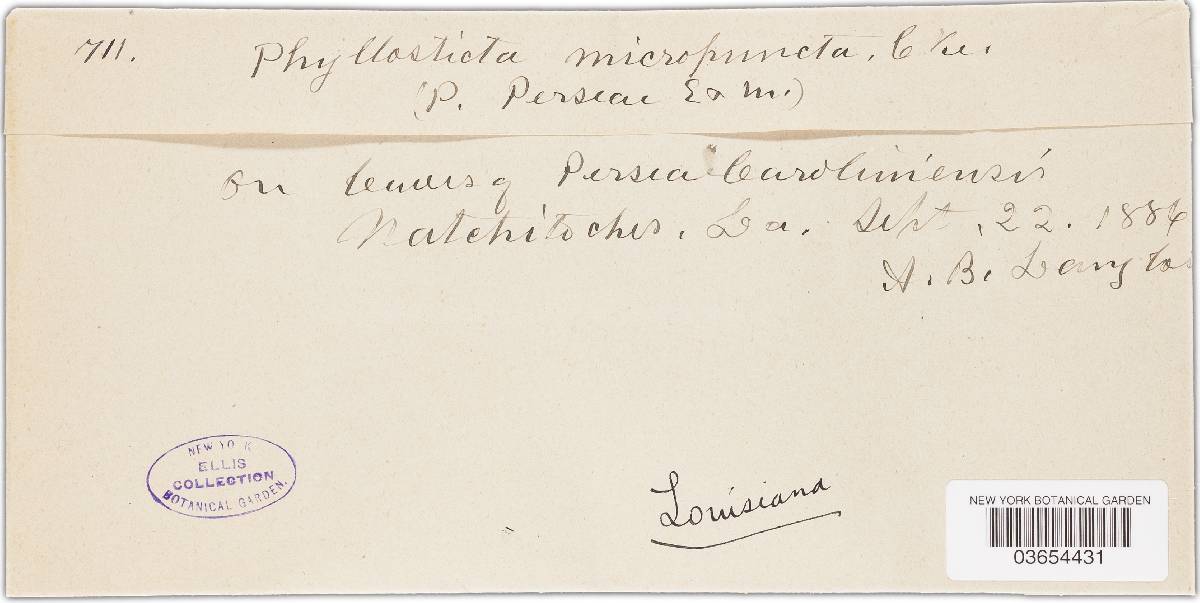 711. Phyllosticta micropuncta, Cke.
(P. Perseae E & M.)
on leaves of Persea Caroliniensis
Natchitoches, La. Sept. 22. 1886
A. B. Langlois
NEW YORK
ELLIS
COLLECTION
BOTANICAL GARDEN.
Louisiana
NEW YORK BOTANICAL GARDEN
03654431